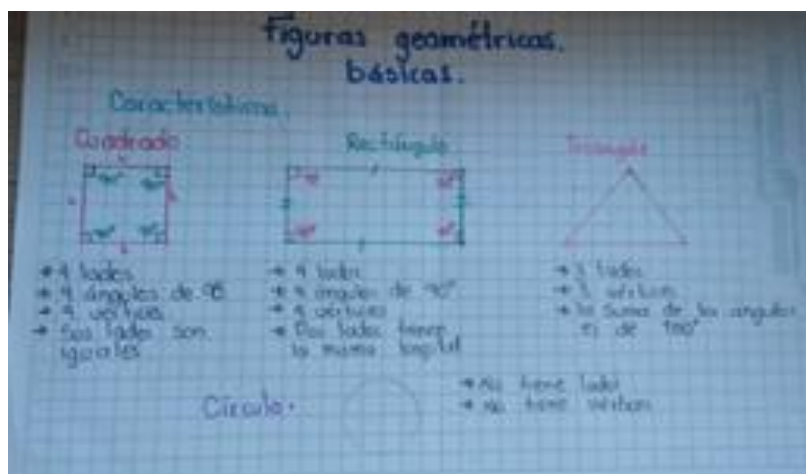 Figuras geométricas.
básicas.
Características.
Cuadrado
4 lados
4 ángulos de 90
4 vértices
Sus lados son
iguales
Rectángulo
4 lados
4 ángulos de 90°
4 vértices
Dos lados tienen
la misma longitud
Triángulo
3 lados
3 vértices
la suma de los angulos
es de 180°
Círculo.
No tiene lados
no tiene vértices